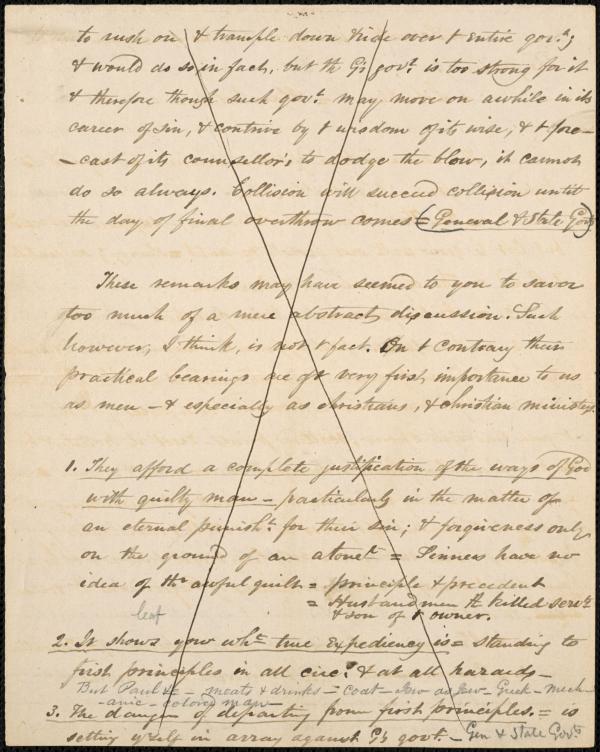 to rush on & trample down & ride over & entire gov.t;
& would do so in fact, but th G's gov.t is too strong for it
& therefore though such gov.t may move on awhile in its
career of sin, & contrive by & wisdom of its wise, & & fore-
-cast of its counsellor's to dodge the blow, it cannot
do so always. Collision will succeed collision until
the day of final overthrow comes = (General & State Gov)
These remarks may have seemed to you to savor
too much of a mere abstract discussion. Such
however, I think, is not & fact. On & contrary their
practical bearings are of & very first importance to us
as men - & especially as christians, & christian ministers.
1. They afford a complete justification of the ways of God
with guilty man - particularly in the matter of
an eternal punish.t for their sin; & forgiveness only
on the ground of an atone.t = Sinners have no
idea of thr awful guilt = principle & precedent
= Husbandmen th killed serv.ts
& son of & owner.
leaf
2. It shows you wht. true Expediency is = standing to
first principles in all circ.s & at all hazards -
But Paul &c - meats & drinks = coat - Jew as Jew - Greek - mech-
-anic - colored man -
3. The danger of departing from first principles. = is
setting yrself in array against G's gov.t - Gen & State Gov.ts